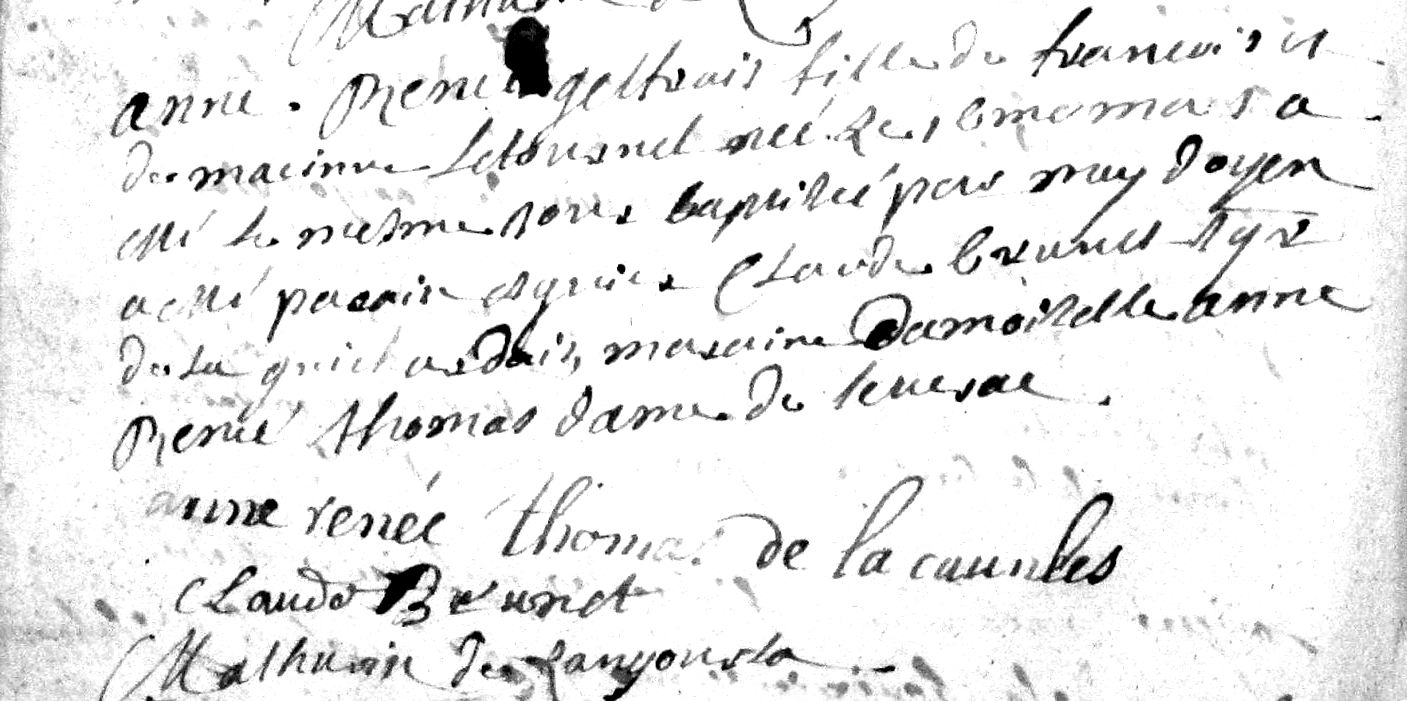 Mathurin de
anne . Renée geffrais fille de francois et
de macinne letournel née le 1 6me mars a
esté le mesme jour baptisée par moy doyen
a esté parain escuier Claude brunet Sgr
de la guichardais, maraine damoiselle anne
Renée thomas dame de keuerac .
anne renée thomas de la cauneles
Claude Brunet
Mathurin de Langourla